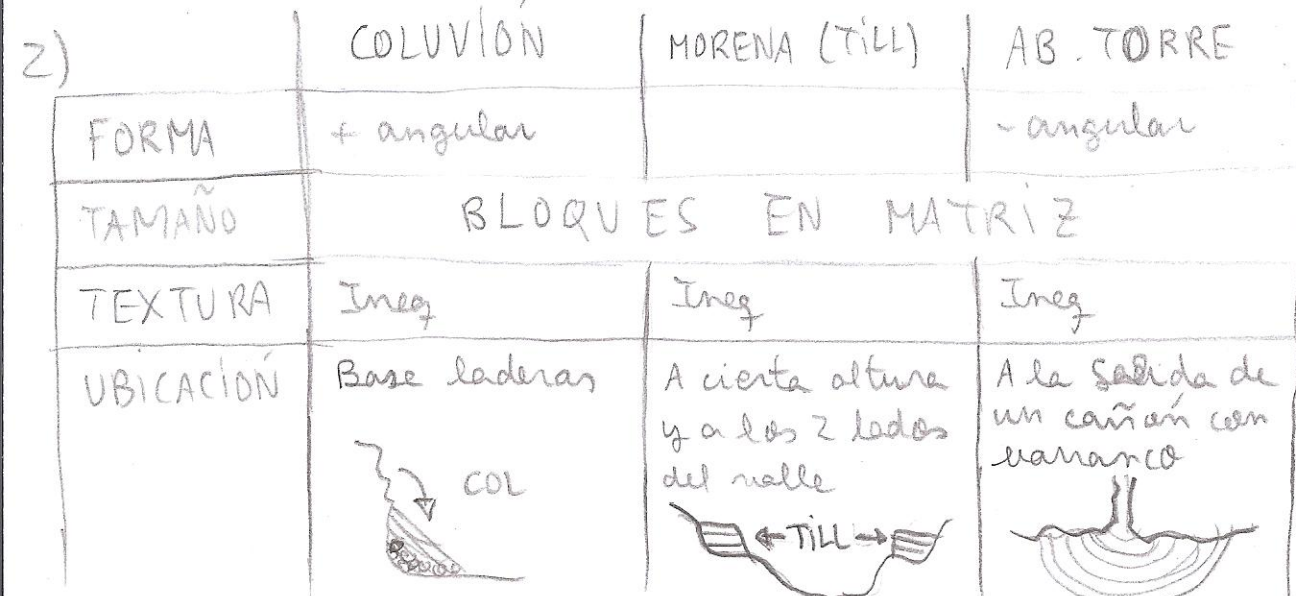 2)
COLUVIÓN MORENA (TILL) AB. TORRE
FORMA + angular - angular
TAMAÑO BLOQUES EN MATRIZ
TEXTURA Ineq Ineq Ineq
UBICACIÓN
Base laderas
COL
A cierta altura
y a los 2 lados
del valle
TILL
A la salida de
un cañón con
varranco